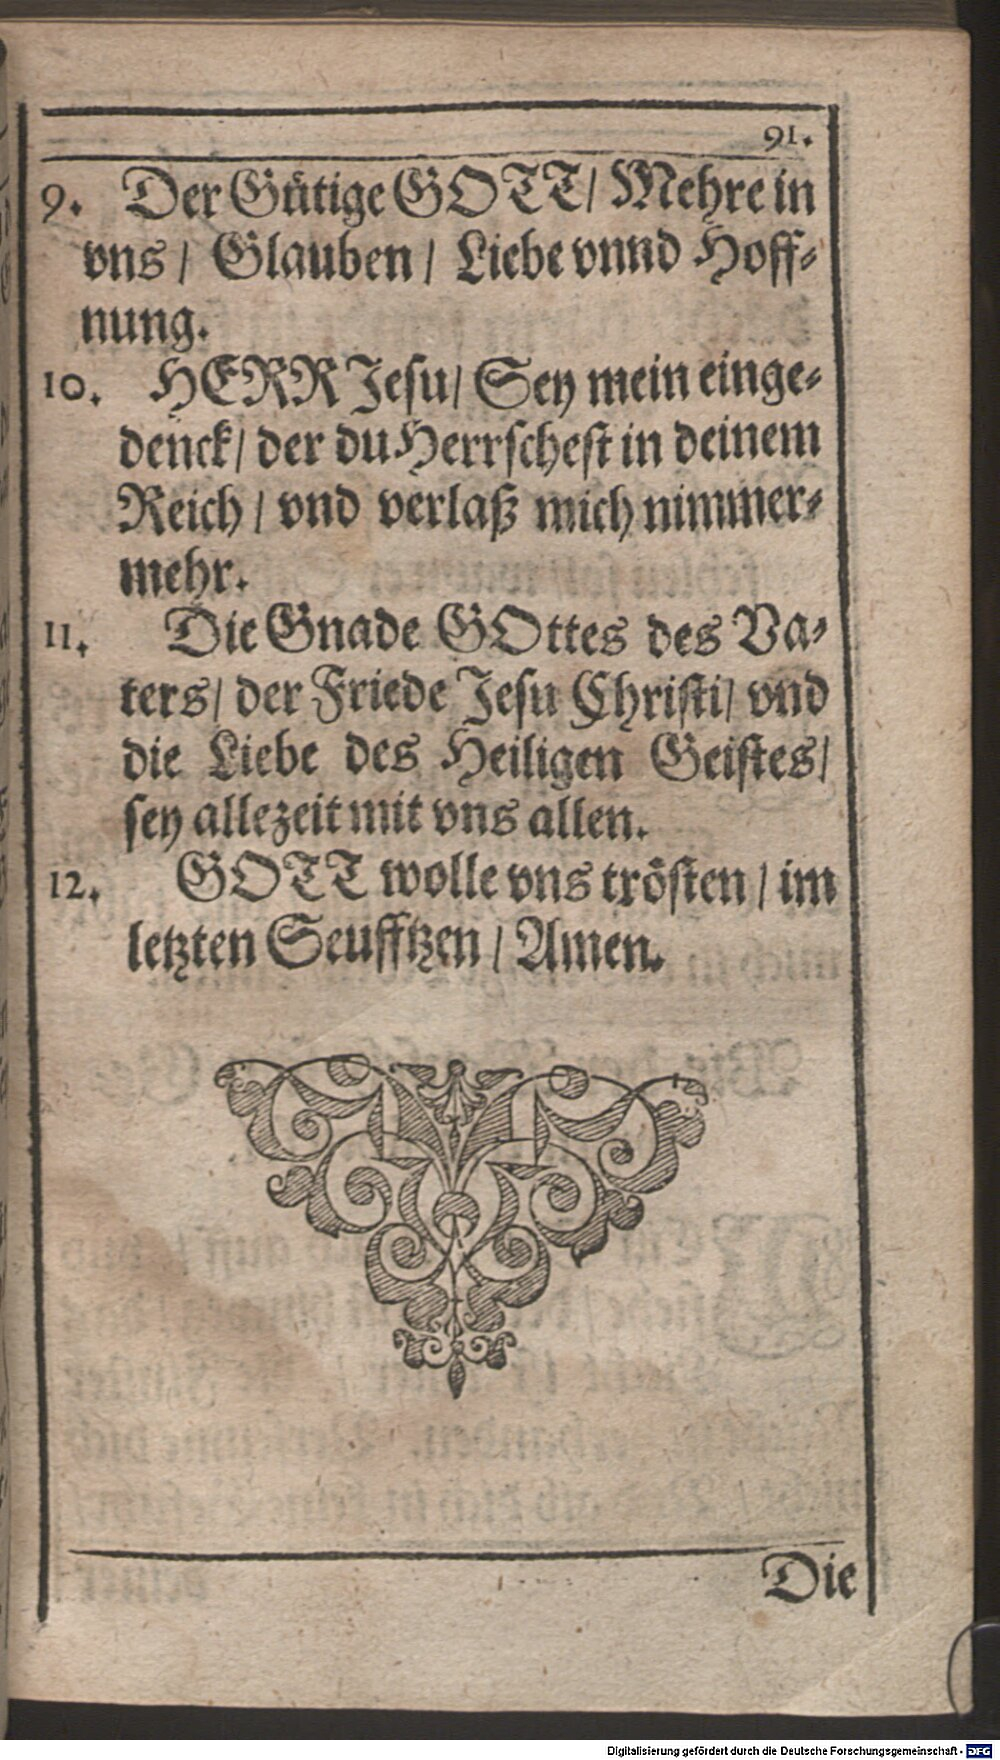 91.
9. Der Gütige GOTT/ Mehre in
vns / Glauben / Liebe vnnd Hoff-
nung.
10. HERR Jesu/ Sey mein einge-
denck/ der du Herrschest in deinem
Reich / vnd verlaß mich nimmer-
mehr.
11. Die Gnade GOttes des Va-
ters/ der Friede Jesu Christi/ vnd
die Liebe des Heiligen Geistes/
sey allezeit mit vns allen.
12. GOTT wolle vns trösten / im
letzten Seufftzen / Amen.
Die
Digitalisierung gefördert durch die Deutsche Forschungsgemeinschaft - DFG